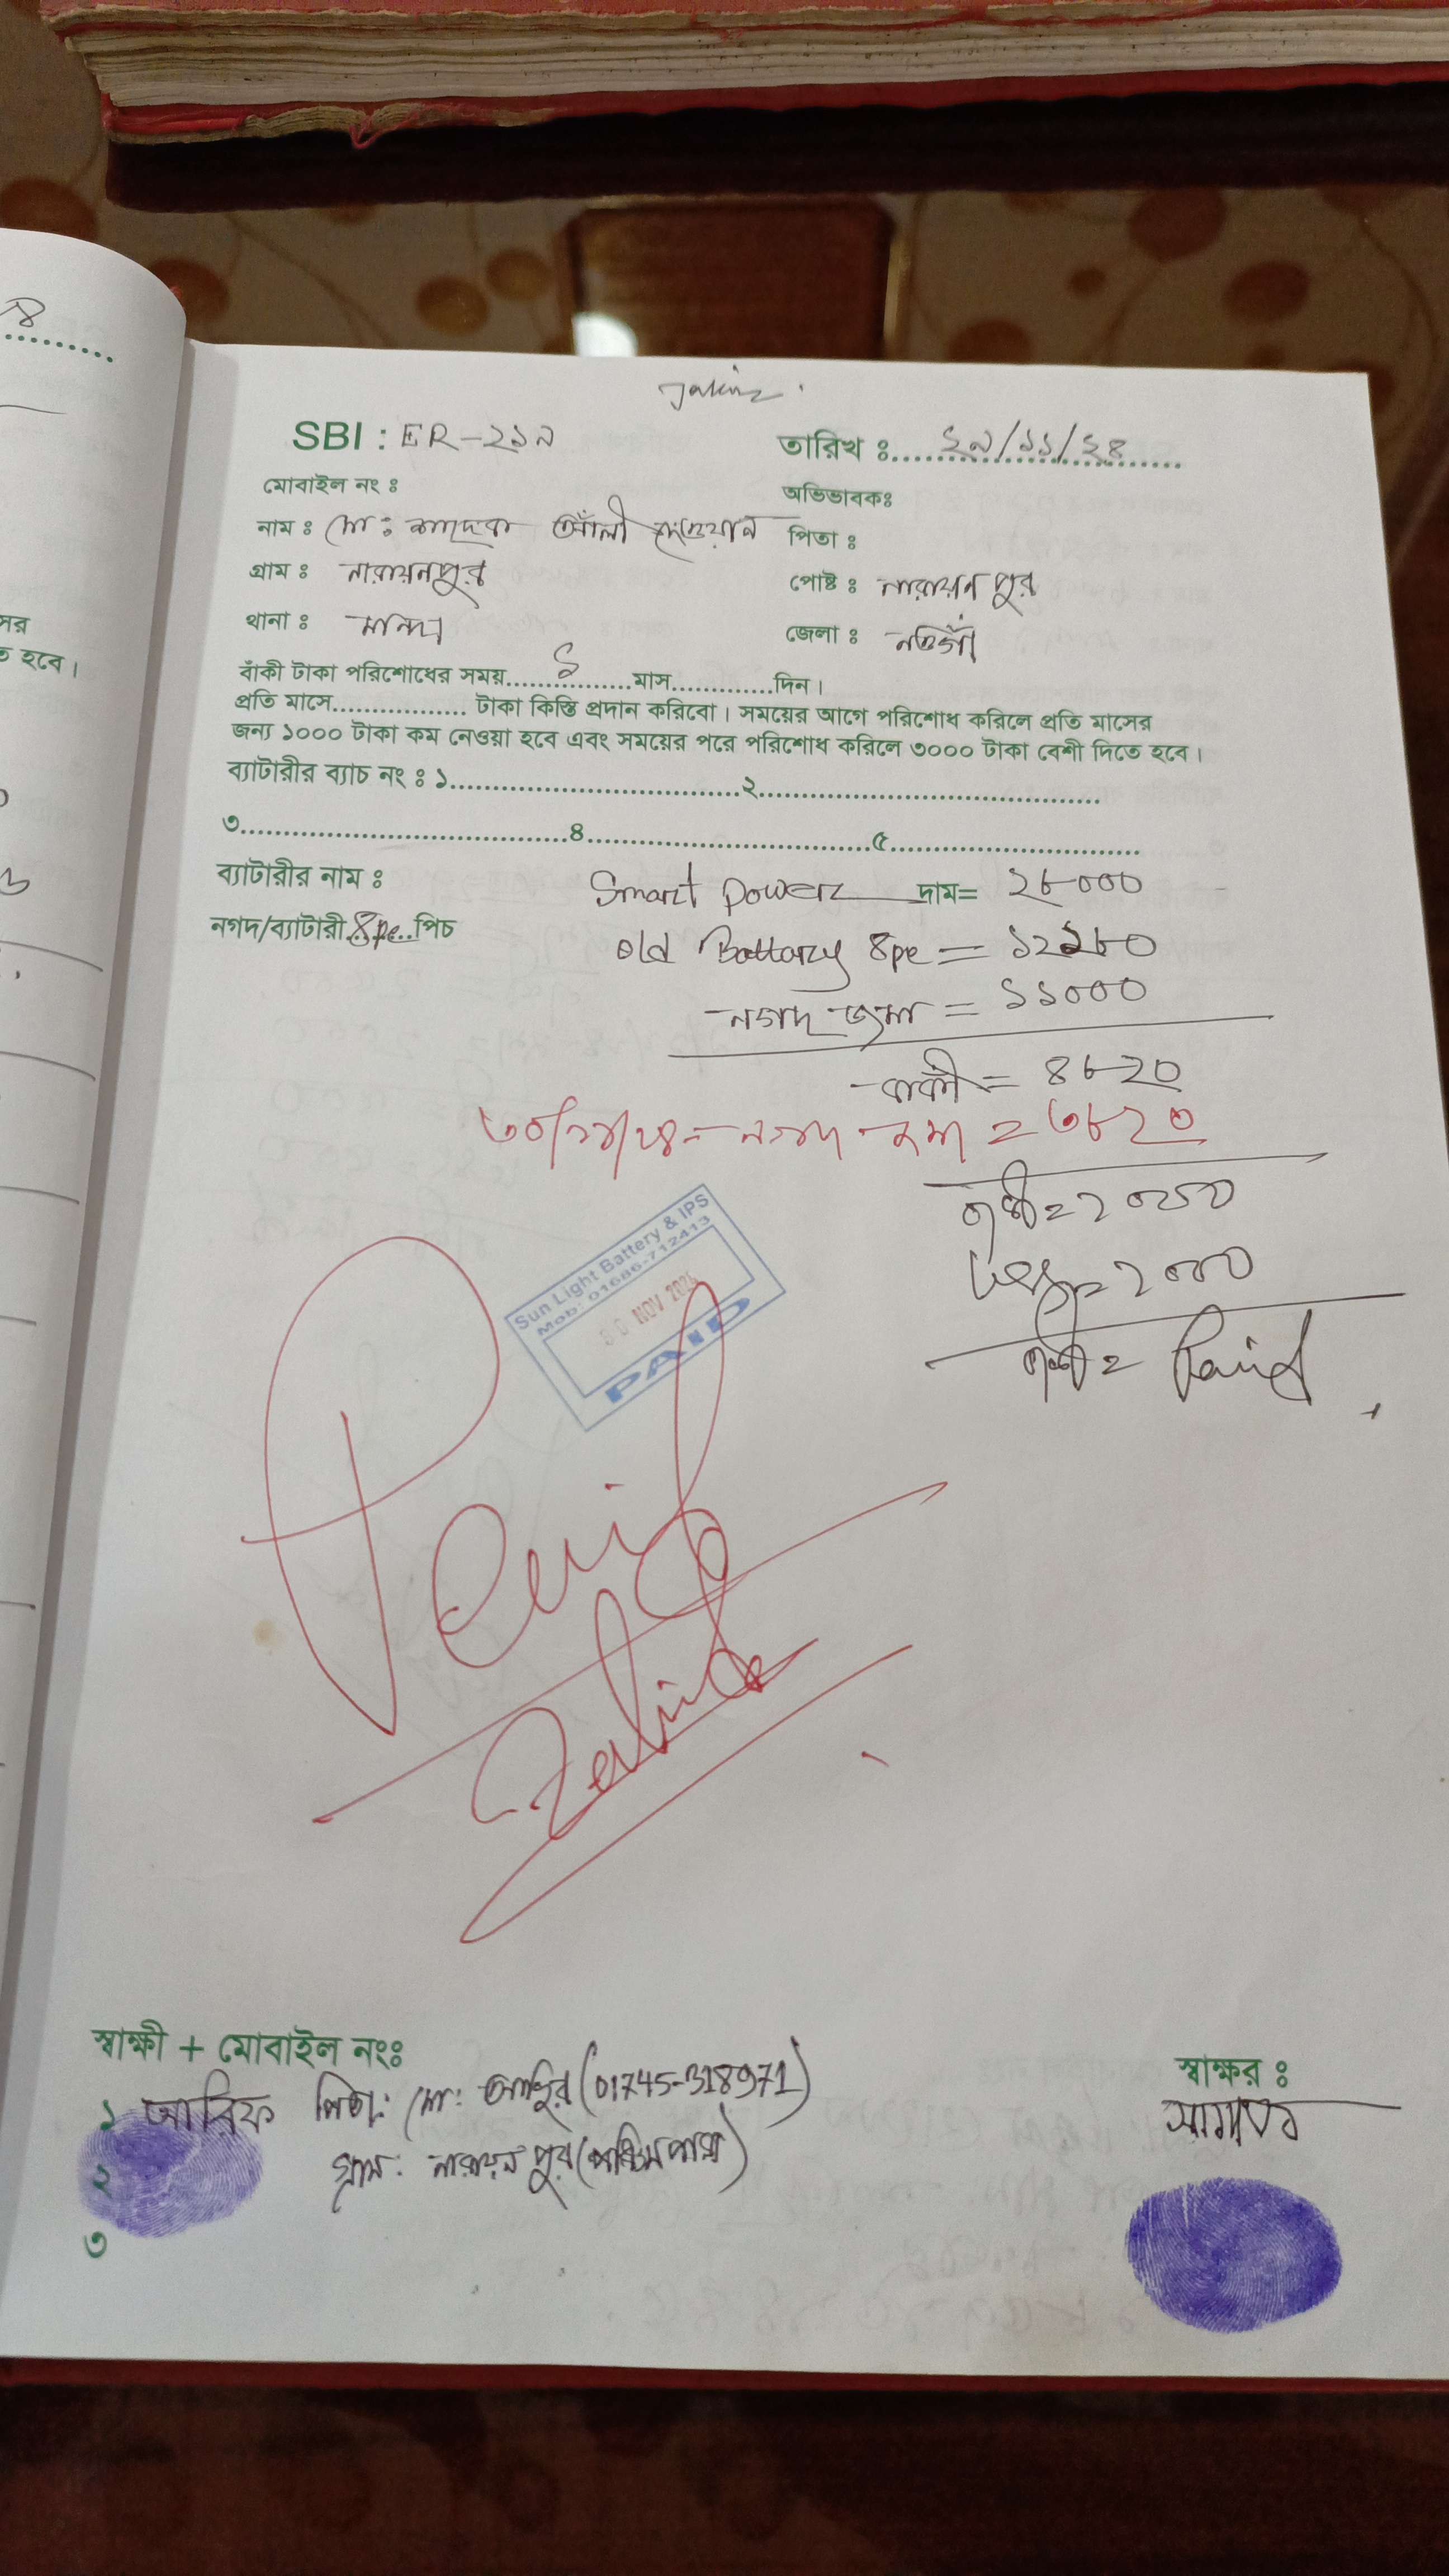 SBI : ER-২১৯
তারিখ ঃ ২৯/১১/২৪
মোবাইল নং ঃ
অভিভাবকঃ
নাম ঃ মোঃ আলী দেওয়ান
পিতা ঃ
গ্রাম ঃ নারায়নপুর
পোষ্ট ঃ নারায়নপুর
থানা ঃ মান্দা
জেলা ঃ নওগাঁ
বাঁকী টাকা পরিশোধের সময়......১......মাস............দিন।
প্রতি মাসে................ টাকা কিস্তি প্রদান করিবো। সময়ের আগে পরিশোধ করিলে প্রতি মাসের
জন্য ১০০০ টাকা কম নেওয়া হবে এবং সময়ের পরে পরিশোধ করিলে ৩০০০ টাকা বেশী দিতে হবে।
ব্যাটারীর ব্যাচ নং ঃ ১................................২................................
৩................................৪................................৫................................
ব্যাটারীর নাম ঃ Smart Power দাম= ২৮০০০
নগদ/ব্যাটারী ৪pc পিচ
Old Battary ৪pc = ১২১৮০
নগদ জমা = ১১০০০
বাকী = ৪৮২০
৩০/১১/২৪ = নগদ জমা = ৩৮২০
বাকী = ১০০০
= ১০০০
বাকী = Paid
Sun Light Battery & IPS
Mob: 01686-712413
30 NOV 2024
PAID
Paid
স্বাক্ষী + মোবাইল নংঃ
স্বাক্ষর ঃ
১ আরিফ পিতা: মো: (01745-318971)
২ গ্রাম: নারায়নপুর (পশ্চিমপাড়া)
৩